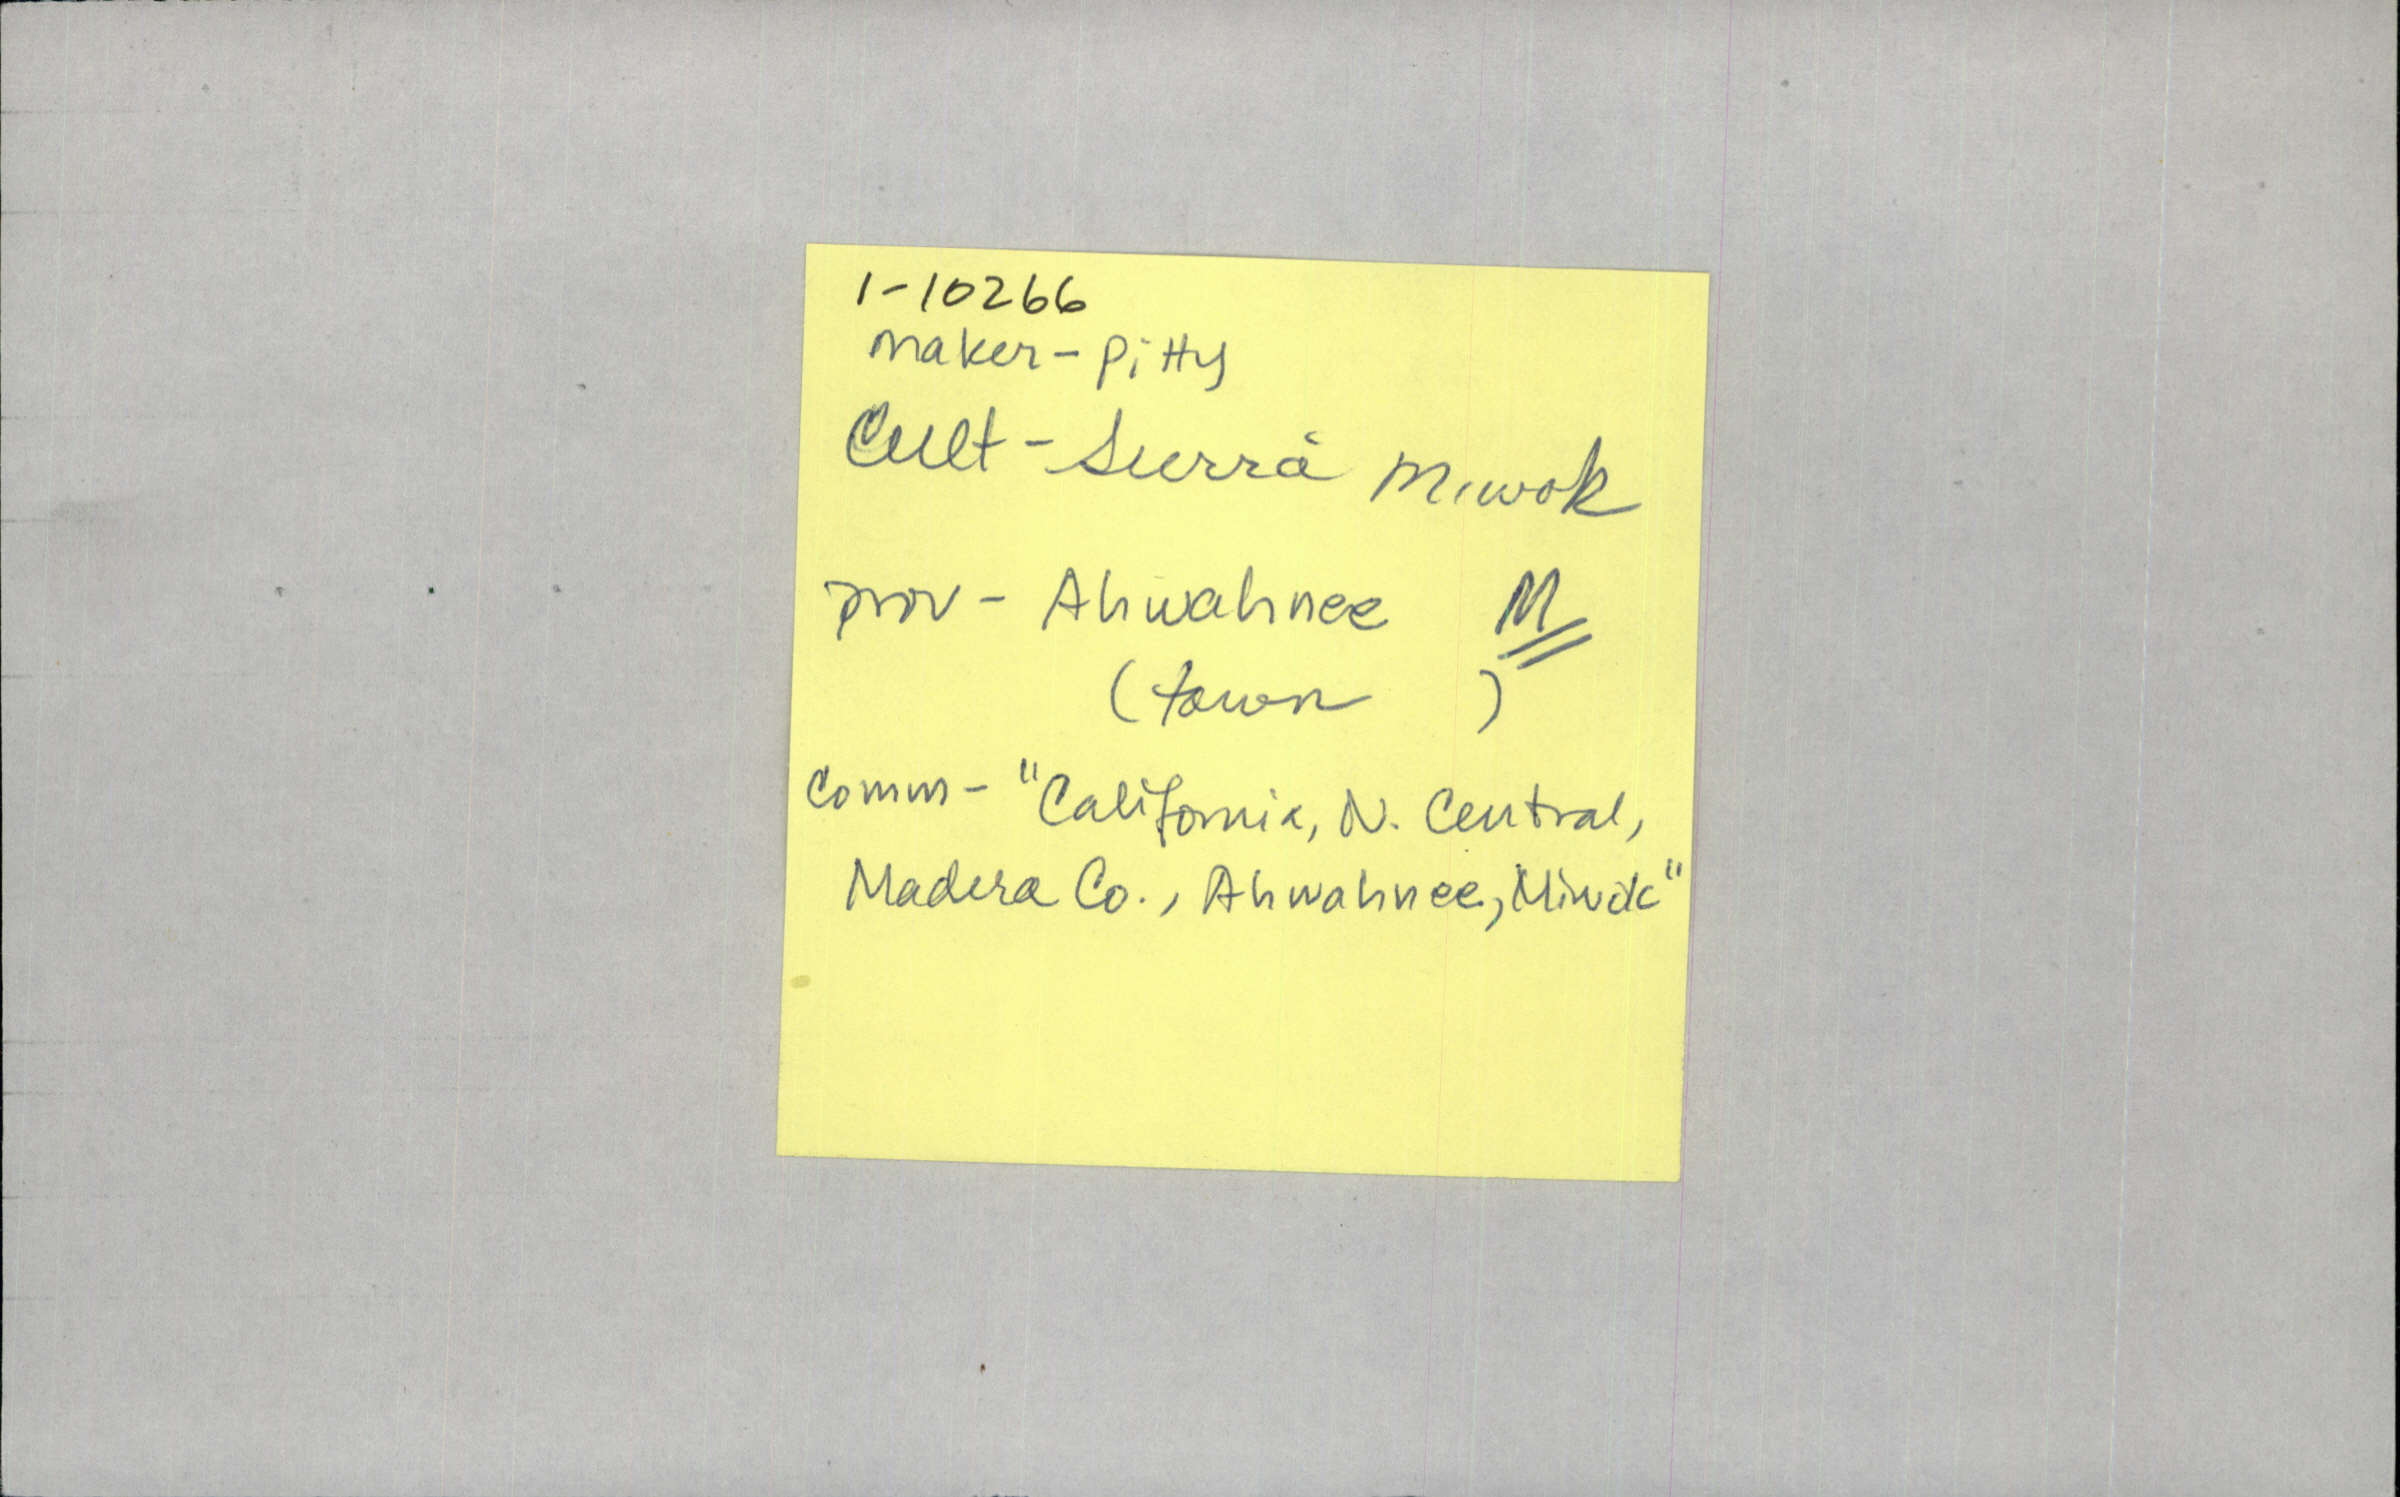 1-10266
maker - Pitty
Cult - Sierra Miwok
prov - Ahwahnee M
(town )
Comm - "California, N. Central,
Madera Co., Ahwahnee, Miwok"